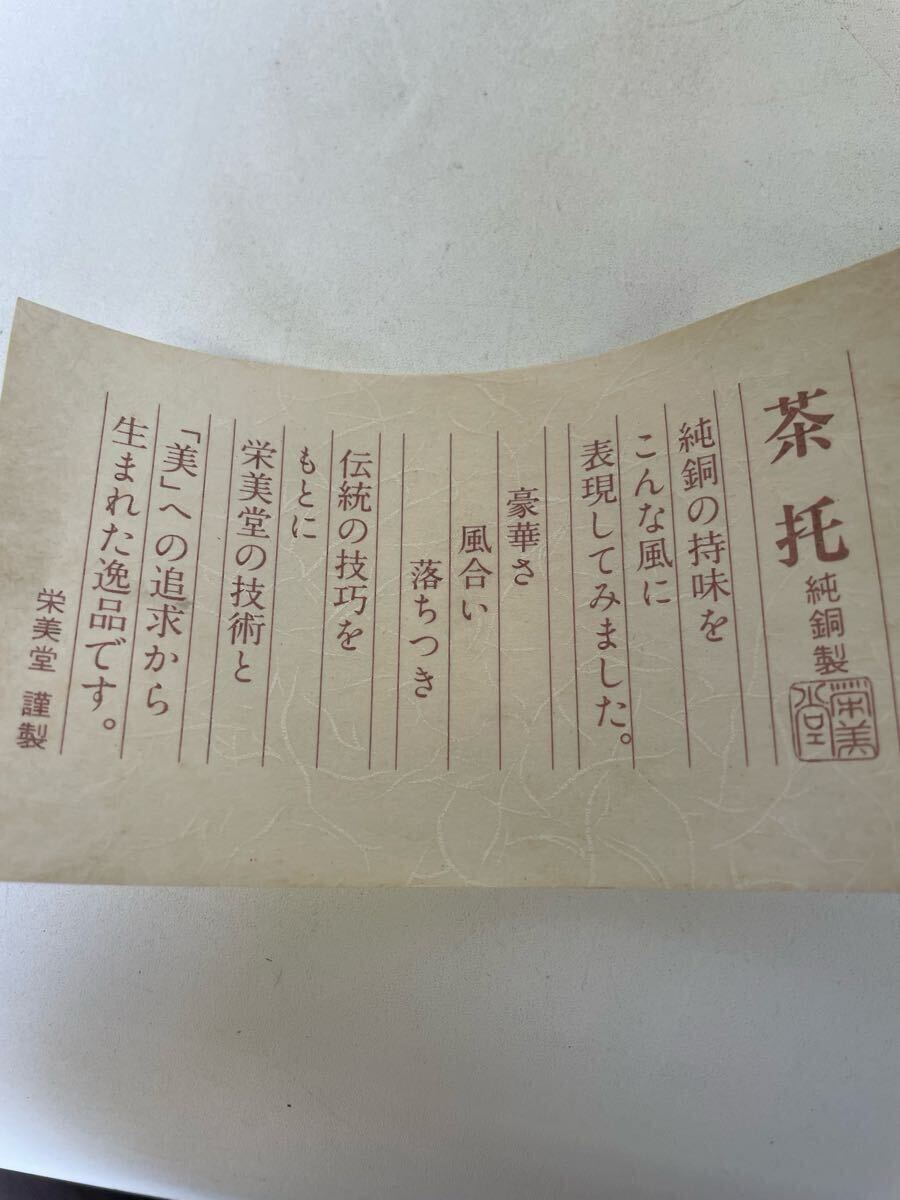 茶托 純銅製
栄美堂
純銅の持味を
こんな風に
表現してみました。
豪華さ
風合い
落ちつき
伝統の技巧を
もとに
栄美堂の技術と
「美」への追求から
生まれた逸品です。
栄美堂 謹製